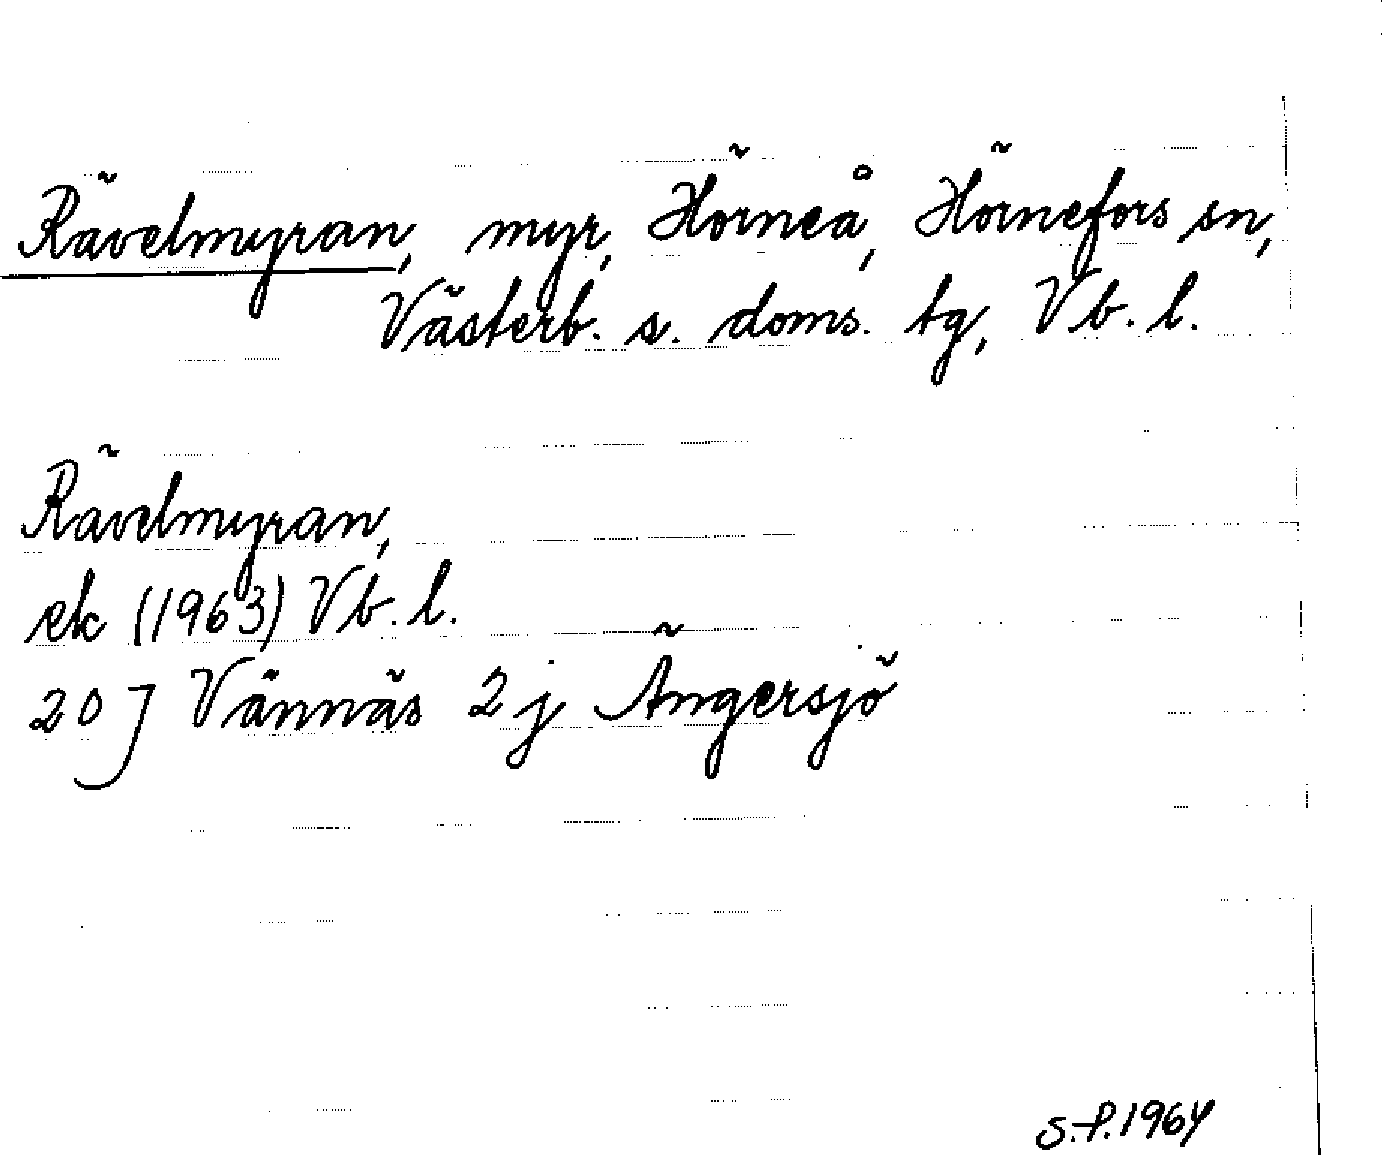 Rävelmyran, myr, Hörneå, Hörnefors sn,
Västerb. s. doms. tg, Vb. l.
Rävelmyran,
ek (1963) Vb. l.
20 J Vännäs 2 j Ängersjö
S.P. 1964